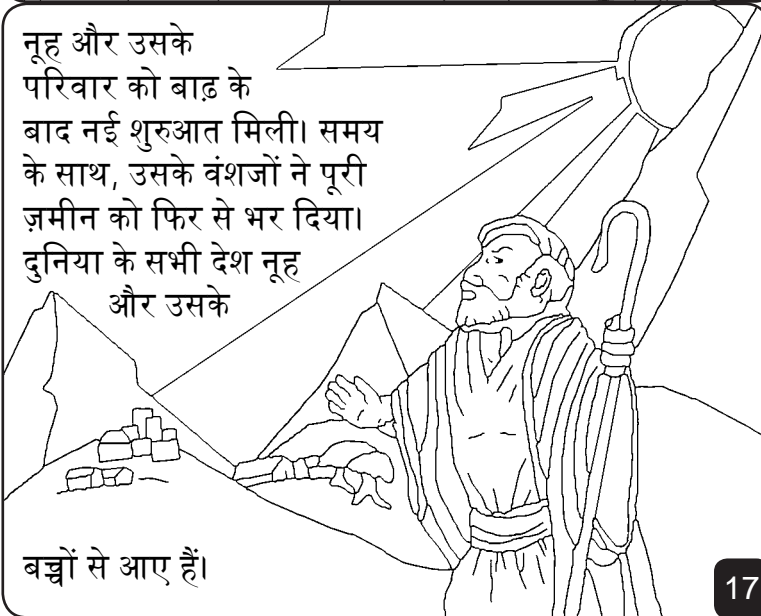 नूह और उसके
परिवार को बाढ़ के
बाद नई शुरुआत मिली। समय
के साथ, उसके वंशजों ने पूरी
ज़मीन को फिर से भर दिया।
दुनिया के सभी देश नूह
और उसके
बच्चों से आए हैं।
17